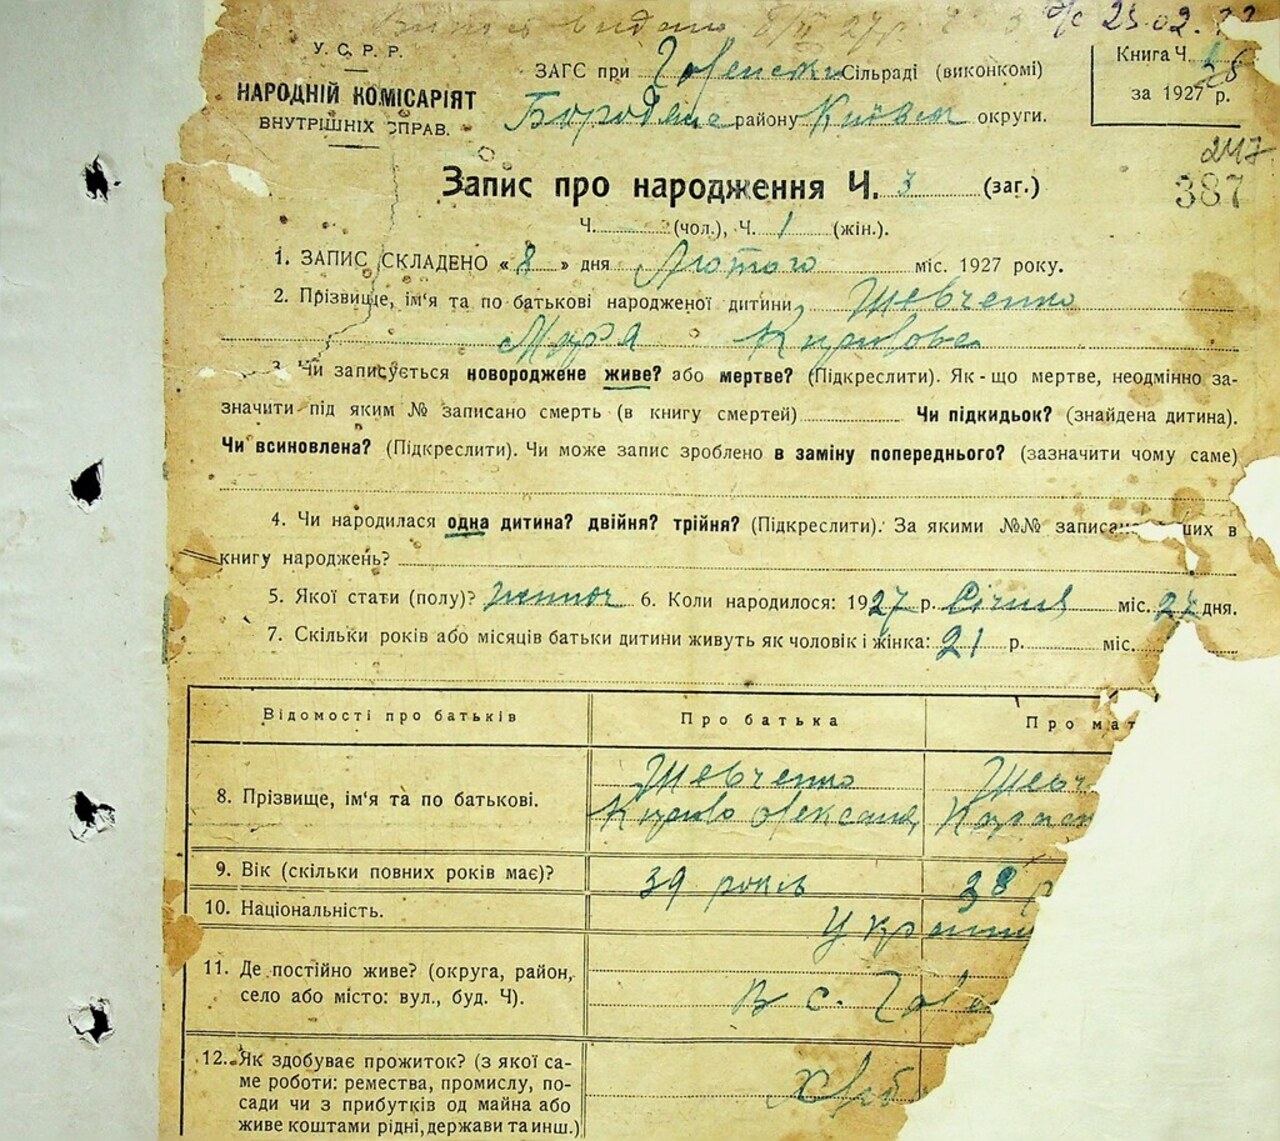 У. С. Р. Р.
НАРОДНІЙ КОМІСАРІЯТ
ВНУТРІШНІХ СПРАВ.
ЗАГС при Сільраді (виконкомі)
району округи.
Книга Ч.
за 1927 р.
247
387
Запис про народження Ч. 3 (заг.)
Ч. (чол.), Ч. 1 (жін.).
1. ЗАПИС СКЛАДЕНО « 8 » дня Лютого міс. 1927 року.
2. Прізвище, ім'я та по батькові народженої дитини Шевченко
Кирилова
3. Чи записується новороджене живе? або мертве? (Підкреслити). Як-що мертве, неодмінно за-
значити під яким № записано смерть (в книгу смертей) Чи підкидьок? (знайдена дитина).
Чи всиновлена? (Підкреслити). Чи може запис зроблено в заміну попереднього? (зазначити чому саме)
4. Чи народилася одна дитина? двійня? трійня? (Підкреслити). За якими №№ записано их в
книгу народжень?
5. Якої стати (полу)? жіноч 6. Коли народилося: 1927 р. Січня міс. 27 дня.
7. Скільки років або місяців батьки дитини живуть як чоловік і жінка: 21 р. міс.
Відомості про батьків Про батька Про мат
8. Прізвище, ім'я та по батькові. Шевченко Шевч
Кирило
9. Вік (скільки повних років має)? 39 років 38 р
10. Національність. Україн
11. Де постійно живе? (округа, район,
село або місто: вул., буд. Ч). в с.
12. Як здобуває прожиток? (з якої са-
ме роботи: ремества, промислу, по-
сади чи з прибутків од майна або
живе коштами рідні, держави та инш.) Хліб